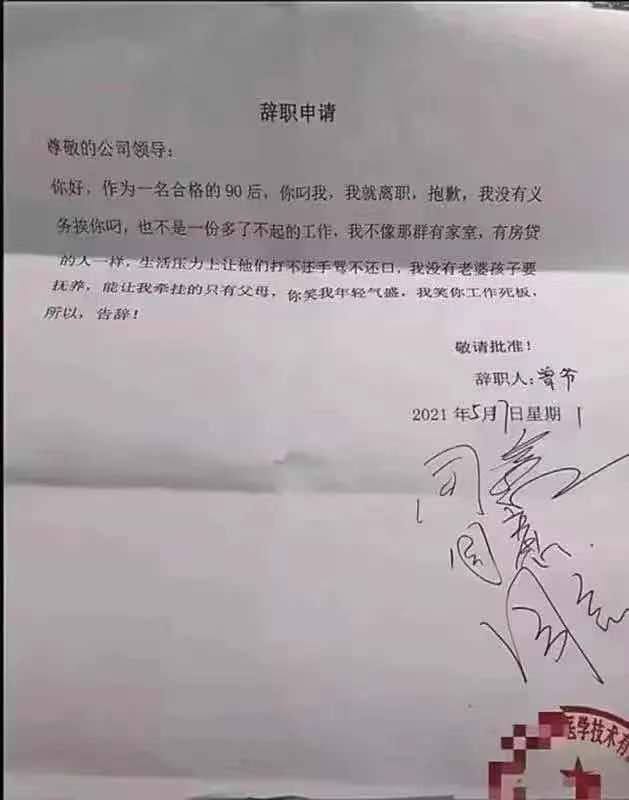 辞职申请
尊敬的公司领导：
你好，作为一名合格的90后，你叼我，我就离职，抱歉，我没有义
务挨你叼，也不是一份多了不起的工作，我不像那群有家室，有房贷
的人一样，生活压力上让他们打不还手骂不还口，我没有老婆孩子要
抚养，能让我牵挂的只有父母，你笑我年轻气盛，我笑你工作死板，
所以，告辞！
敬请批准！
辞职人：曾爷
2021年5月17日星期1
同意
同意
同意
医学技术有